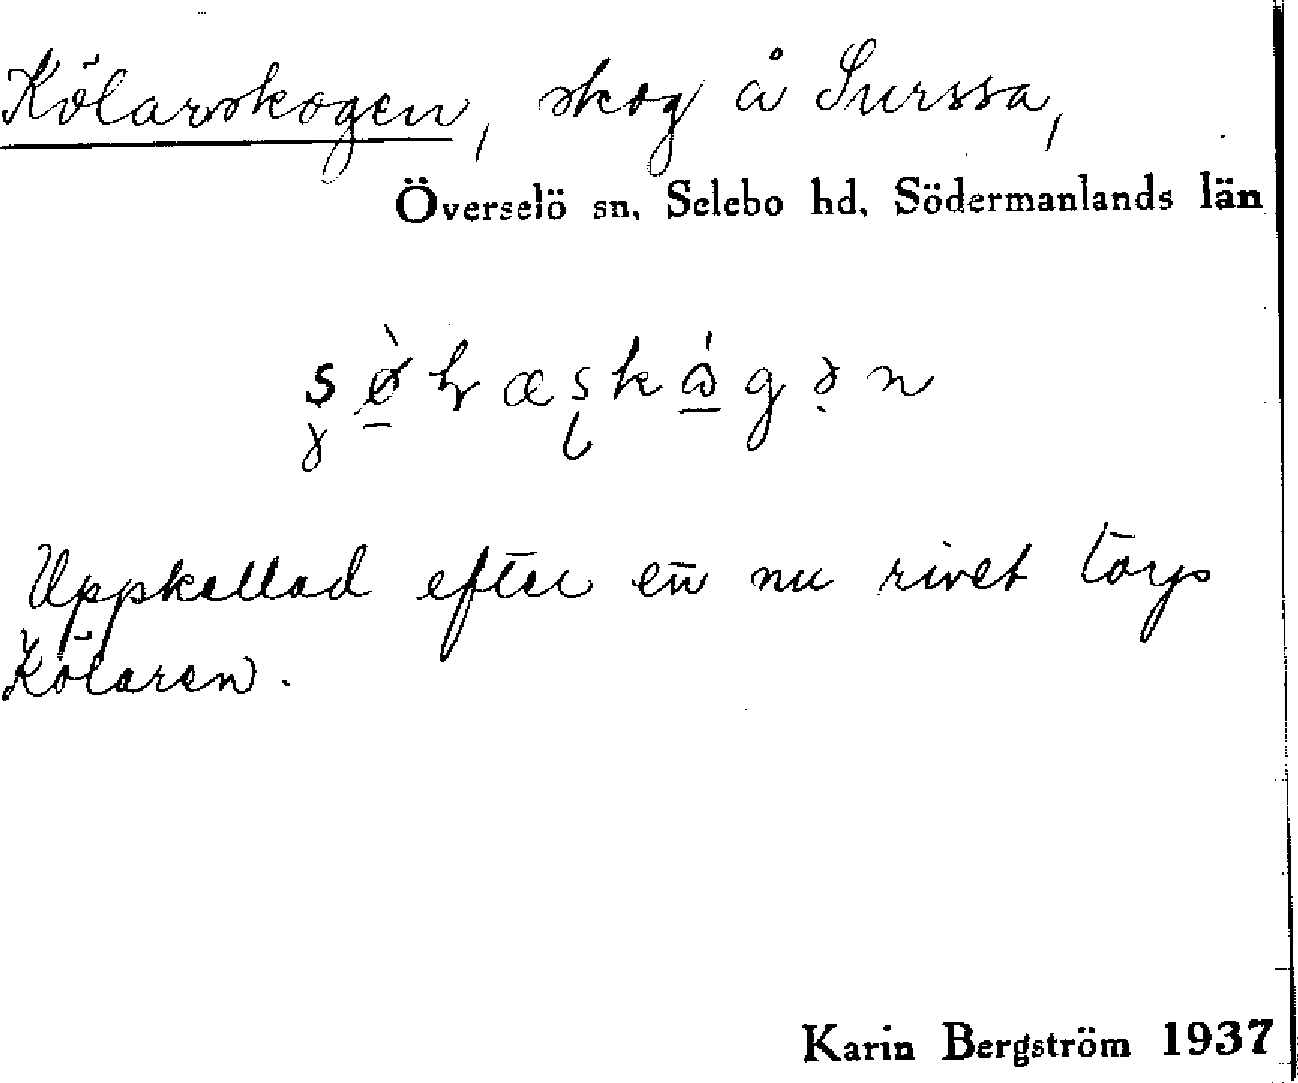 Kölarskogen, skog å Surssa,
Överselö sn, Selebo hd, Södermanlands län
Uppkallad efter en nu rivet torp
Kölaren.
Karin Bergström 1937